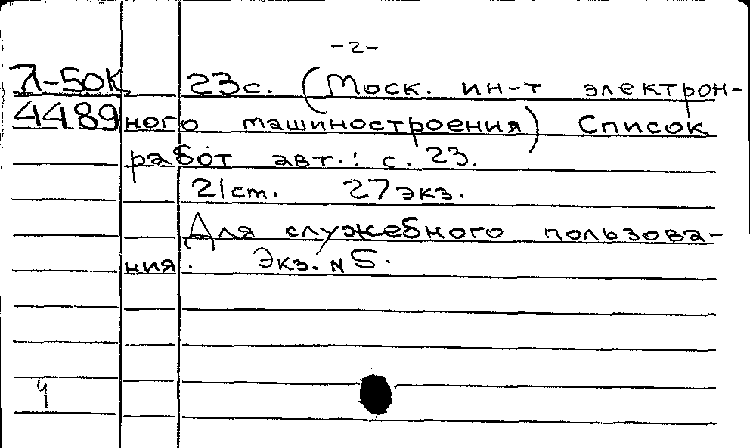 -2-
Л-50К 23с. (Моск. ин-т электрон-
4489 ного машиностроения) Список
работ авт.: с. 23.
21 ст. 27 экз.
Для служебного пользова-
ния. Экз. N 5.